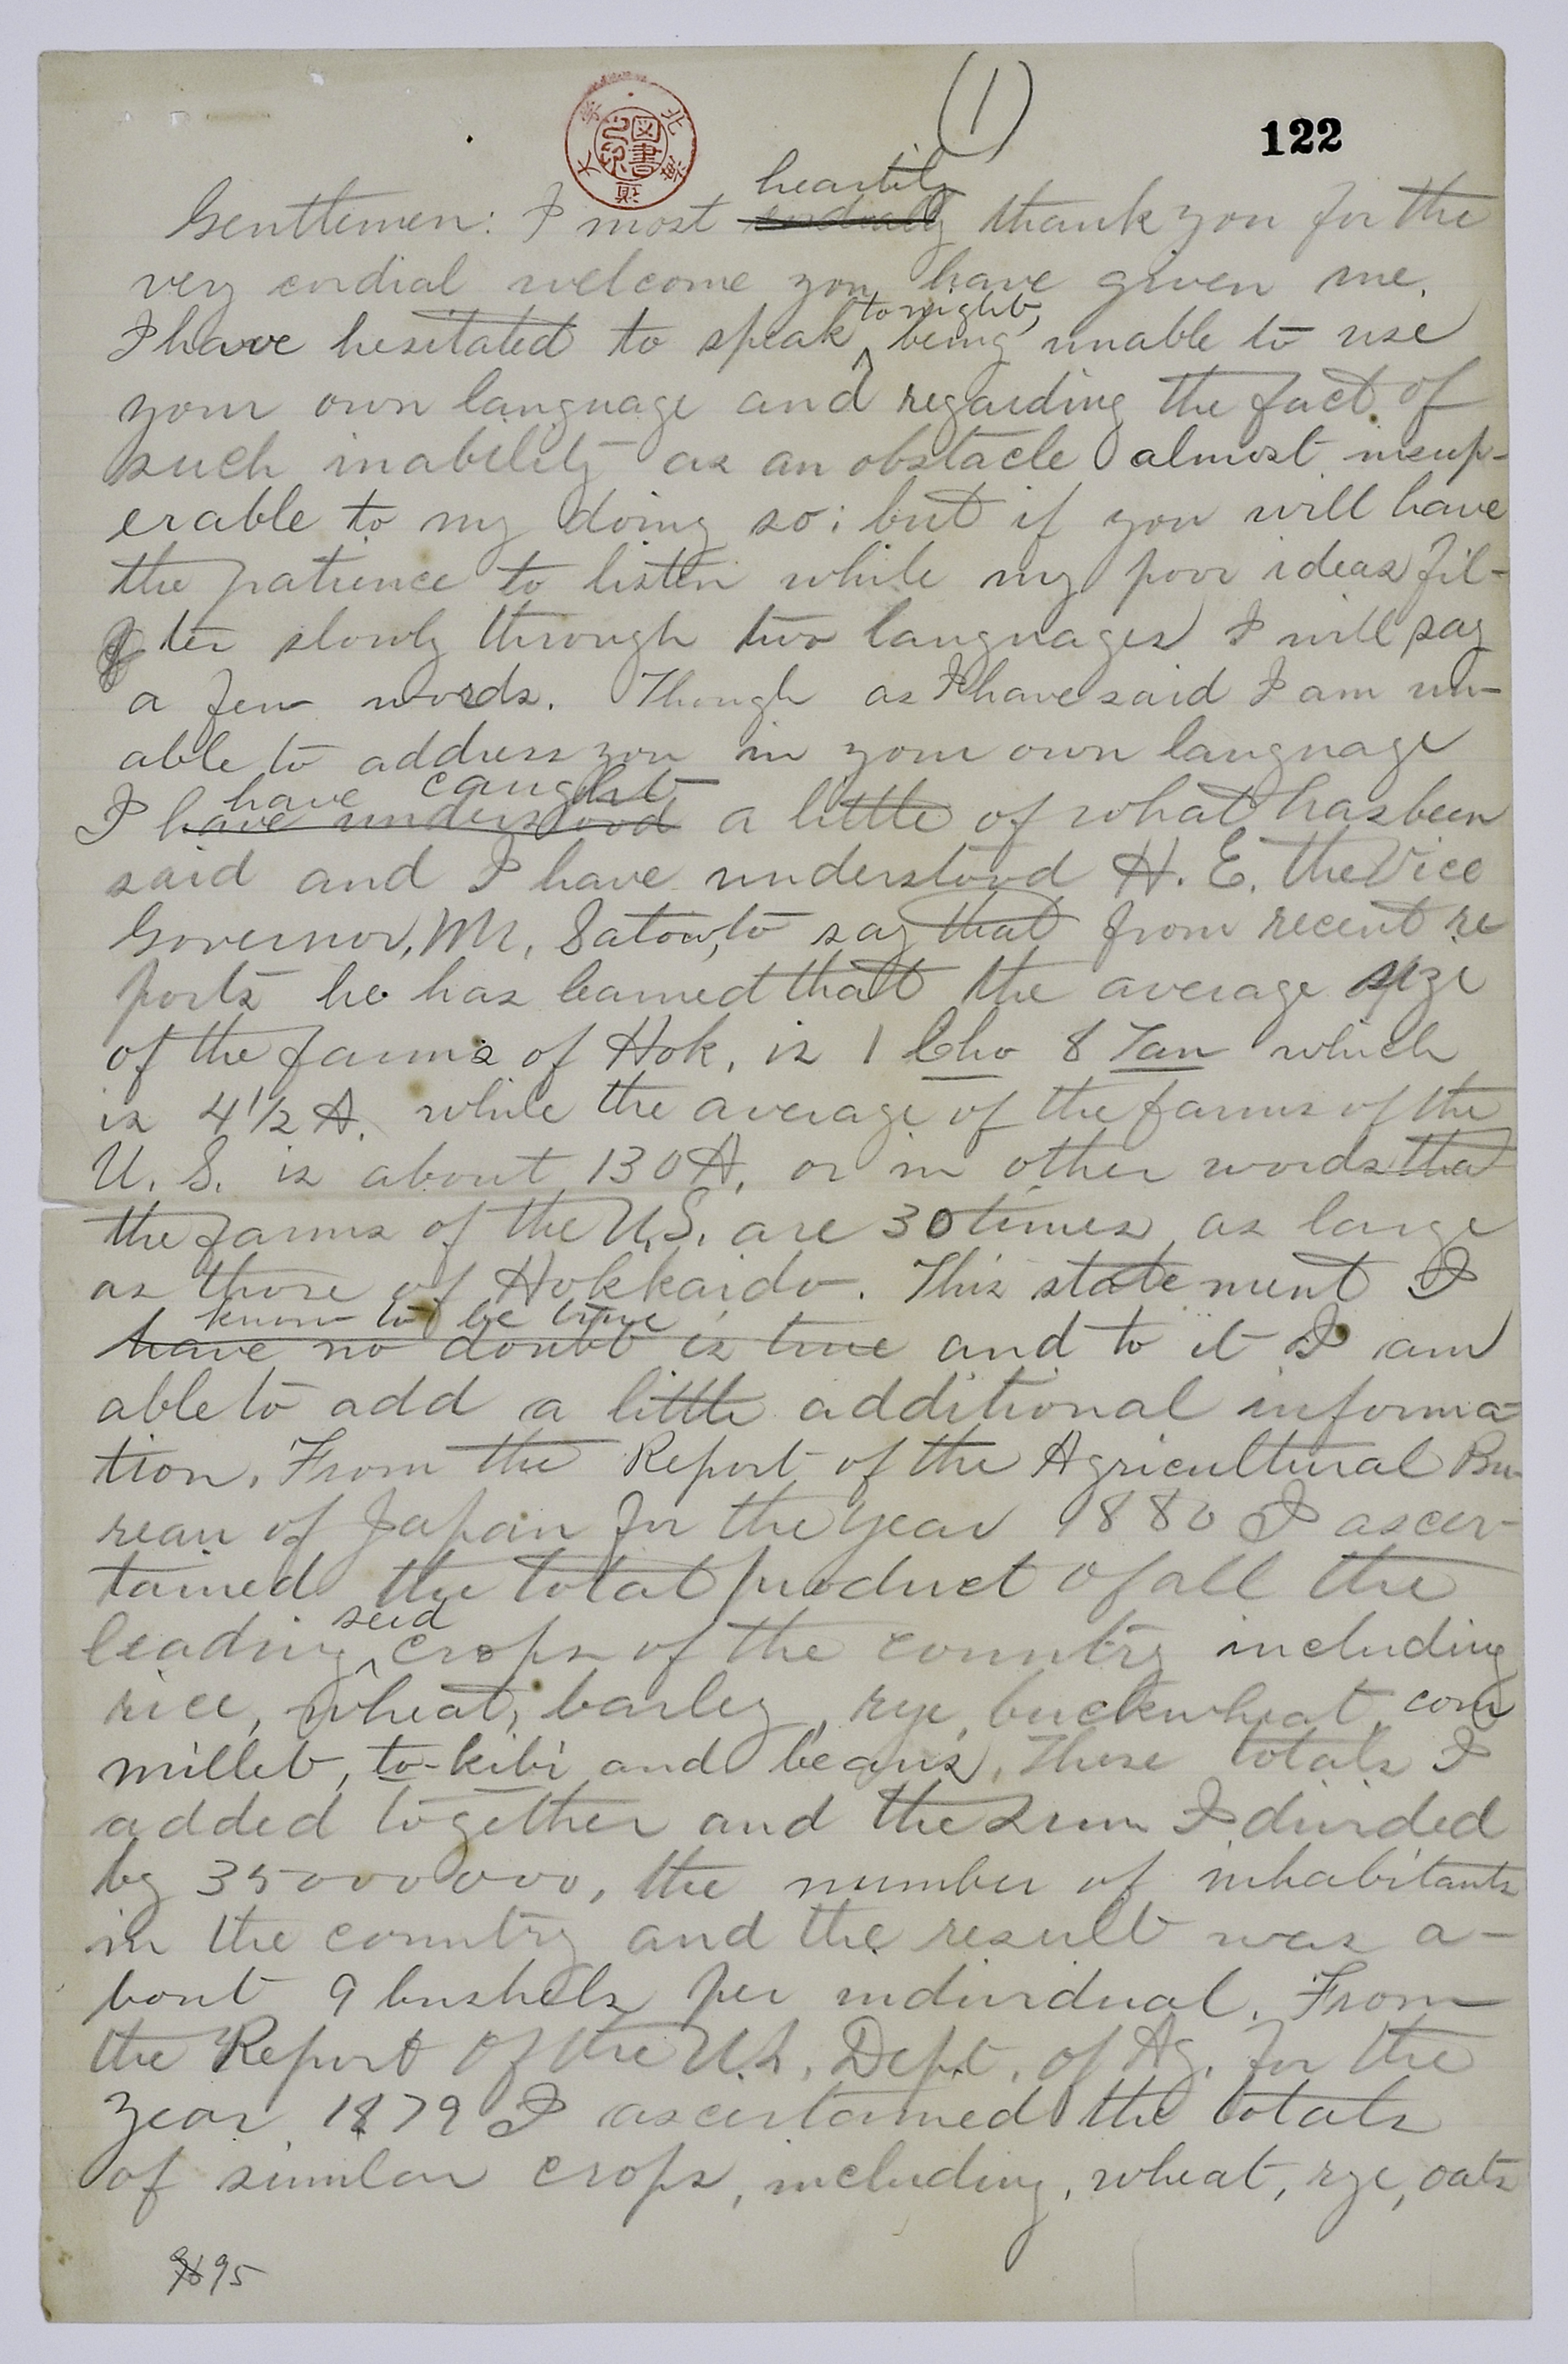 (1)
122
heartily
Gentlemen: I most cordially thank you for the
very cordial welcome you have given me.
to night,
I have hesitated to speak being unable to use
your own language and regarding the fact of
such inability as an obstacle almost insup-
erable to my doing so; but if you will have
the patience to listen while my poor ideas fil-
ter slowly through two languages I will say
a few words. Though as I have said I am un-
able to address you in your own language
have caught
I have understood a little of what has been
said and I have understood H. E. the Vice
Governor, Mr. Satow, to say that from recent re
ports he has learned that the average size
of the farms of Hok. is 1 Cho 8 Tan which
is 4 1/2 A. while the average of the farms of the
U. S. is about 130 A. or in other words that
the farms of the U.S. are 30 times as large
as those of Hokkaido. This statement I
know to be true
have no doubt is true and to it I am
able to add a little additional informa-
tion. From the Report of the Agricultural Bu-
reau of Japan for the year 1880 I ascer-
tained the total product of all the
seed
leading crops of the country including
rice, wheat, barley, rye, buckwheat, corn
millet, to-kibi and beans. These totals I
added together and the sum I divided
by 35000000, the number of inhabitants
in the country and the result was a-
bout 9 bushels per individual. From
the Report of the U.S. Dept. of Ag. for the
year 1879 I ascertained the totals
of similar crops, including, wheat, rye, oats
95